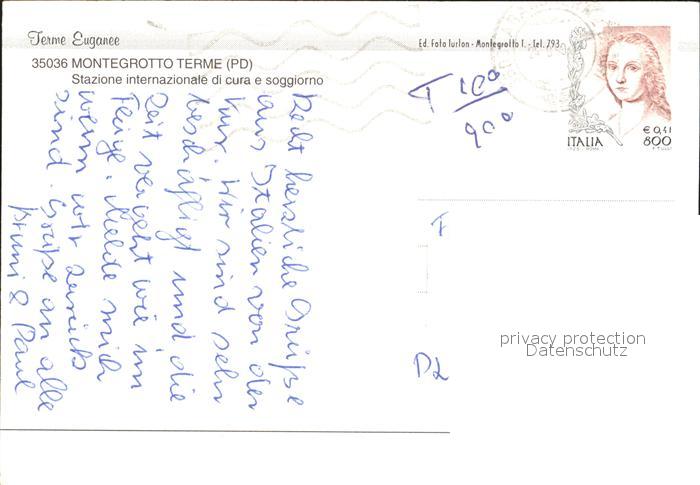 Terme Euganee
Ed. Foto Turlon - Montegrotto T. - Tel. 793
35036 MONTEGROTTO TERME (PD)
Stazione internazionale di cura e soggiorno
T 100
900
€ 0,41
ITALIA 800
Recht herzliche Grüße
aus Italien von der
Kur. Wir sind sehr
beschäftigt und die
Zeit vergeht wie im
Fluge. Melde mich
wenn wir zurück
sind. Grüße an alle
& Paul
privacy protection
Datenschutz